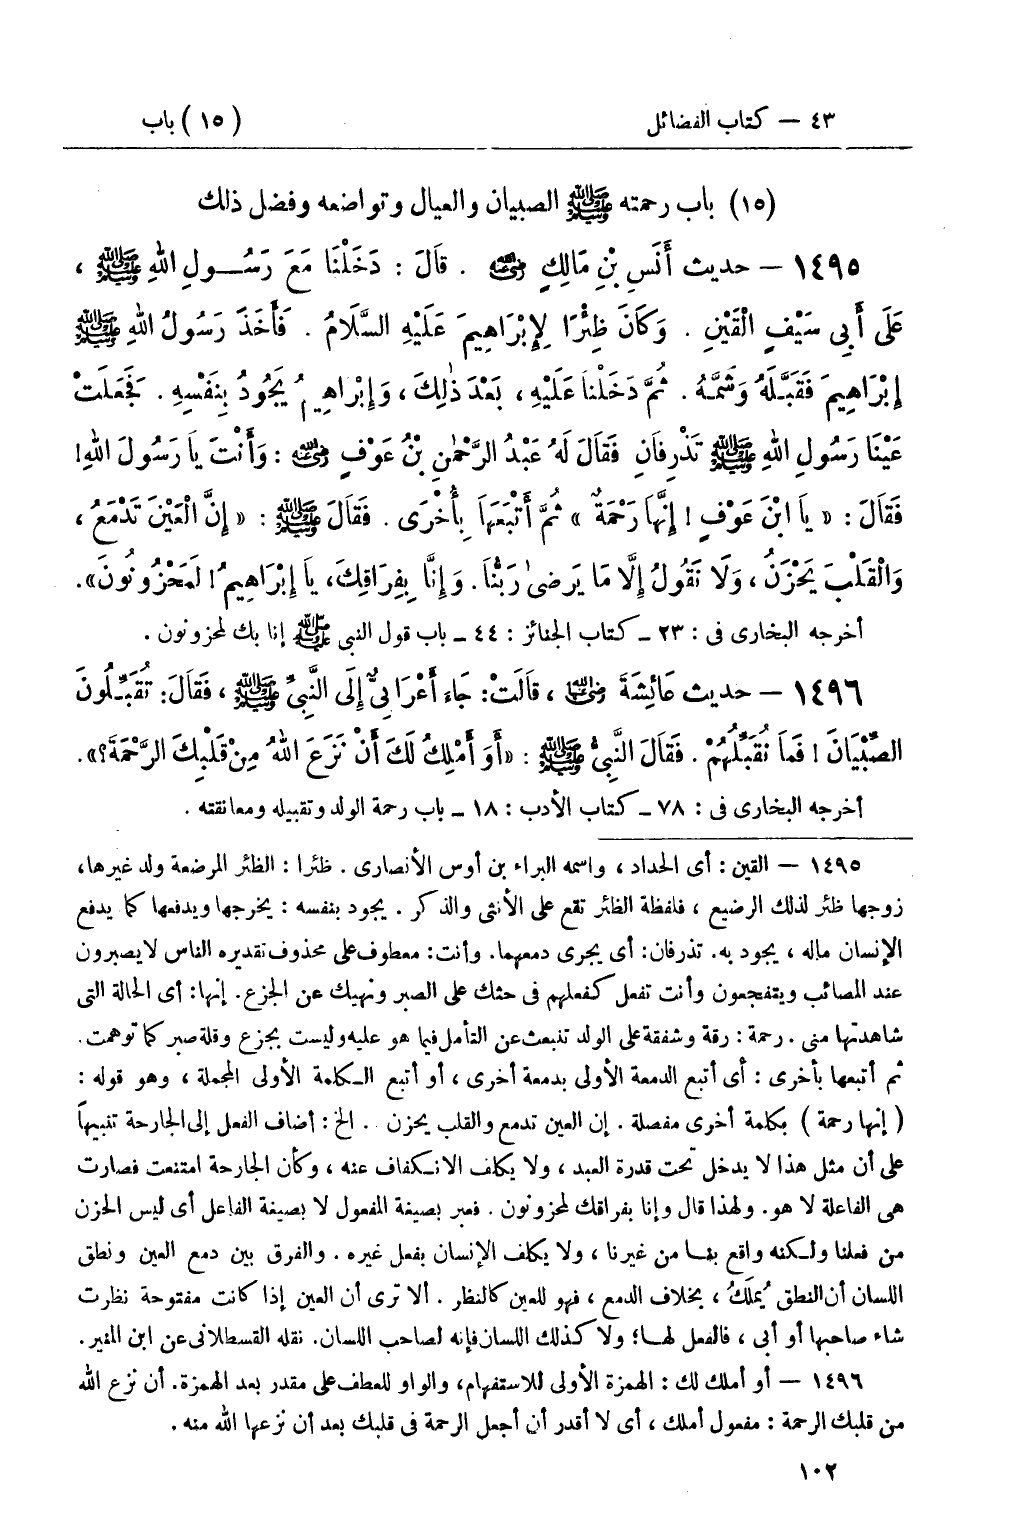 ٤٣ — كتاب الفضائل (١٥) باب
(١٥) باب رحمته ﷺ الصبيان والعيال وتواضعه وفضل ذلك
١٤٩٥ — حديث أَنَسِ بْنِ مَالِكٍ رضي الله عنه . قَالَ : دَخَلْنَا مَعَ رَسُولِ اللهِ ﷺ ،
عَلَى أَبِى سَيْفٍ الْقَيْنِ . وَكَانَ ظِئْرًا لِإِبْرَاهِيمَ عَلَيْهِ السَّلَامُ . فَأَخَذَ رَسُولُ اللهِ ﷺ
إِبْرَاهِيمَ فَقَبَّلَهُ وَشَمَّهُ . ثُمَّ دَخَلْنَا عَلَيْهِ ، بَعْدَ ذٰلِكَ ، وَإِبْراهِيمُ يَجُودُ بِنَفْسِهِ . فَجَعَلَتْ
عَيْنَا رَسُولِ اللهِ ﷺ تَذْرِفَانِ فَقَالَ لَهُ عَبْدُ الرَّحْمٰنِ بْنُ عَوْفٍ رضي الله عنه : وَأَنْتَ يَا رَسُولَ اللهِ!
فَقَالَ : « يَا ابْنَ عَوْفٍ ! إِنَّهَا رَحْمَةٌ » ثُمَّ أَتْبَعَهَا بِأُخْرَى . فَقَالَ ﷺ : « إِنَّ الْعَيْنَ تَدْمَعُ ،
وَالْقَلْبَ يَحْزَنُ ، وَلَا نَقُولُ إِلَّا مَا يَرضىٰ رَبُّنَا . وَإِنَّا بِفِرَاقِكَ، يَا إِبْرَاهِيمُ! لَمَحْزُونُونَ».
أخرجه البخارى فى : ٢٣ ـ كتاب الجنائز : ٤٤ ـ باب قول النبى ﷺ إنا بك لمحزونون .
١٤٩٦ — حديث عَائِشَةَ رضي الله عنها ، قَالَتْ: جَاءَ أَعْرَابِىٌّ إِلَى النَّبِىِّ ﷺ ، فَقَالَ: تُقَبِّلُونَ
الصِّبْيَانَ ! فَمَا نُقَبِّلُهُمْ . فَقَالَ النَّبِىُّ ﷺ : «أَوَ أَمْلِكُ لَكَ أَنْ نَزَعَ اللهُ مِنْ قَلْبِكَ الرَّحْمَةَ؟».
أخرجه البخارى فى : ٧٨ ـ كتاب الأدب : ١٨ ـ باب رحمة الولد وتقبيله ومعانقته .
١٤٩٥ — القين : أى الحداد ، واسمه البراء بن أوس الأنصارى . ظئرا : الظئر المرضعة ولد غيرها،
زوجها ظئر لذلك الرضيع ، فلفظة الظئر تقع على الأنثى والذكر . يجود بنفسه : يخرجها ويدفعها كما يدفع
الإنسان ماله ، يجود به. تذرفان: أى يجرى دمعهما. وأنت: معطوف على محذوف تقديره الناس لا يصبرون
عند المصائب ويتفجعون وأنت تفعل كفعلهم فى حثك على الصبر ونهيك عن الجزع. إنها: أى الحالة التى
شاهدتها منى . رحمة : رقة وشفقة على الولد تنبعث عن التأمل فيما هو عليه وليست بجزع وقلة صبر كما توهمت.
ثم أتبعها بأخرى : أى أتبع الدمعة الأولى بدمعة أخرى ، أو أتبع الكلمة الأولى المجملة ، وهو قوله :
( إنها رحمة ) بكلمة أخرى مفصلة . إن العين تدمع والقلب يحزن . الخ : أضاف الفعل إلى الجارحة تنبيهاً
على أن مثل هذا لا يدخل تحت قدرة العبد ، ولا يكلف الانكفاف عنه ، وكأن الجارحة امتنعت فصارت
هى الفاعلة لا هو. ولهذا قال وإنا بفراقك لمحزونون . فعبر بصيغة المفعول لا بصيغة الفاعل أى ليس الحزن
من فعلنا ولكنه واقع بنا من غيرنا ، ولا يكلف الإنسان بفعل غيره . والفرق بين دمع العين ونطق
اللسان أن النطق يُملَكُ ، بخلاف الدمع ، فهو للعين كالنظر . ألا ترى أن العين إذا كانت مفتوحة نظرت
شاء صاحبها أو أبى ، فالفعل لها؛ ولا كذلك اللسان فإنه لصاحب اللسان. نقله القسطلانى عن ابن المنير.
١٤٩٦ — أو أملك لك : الهمزة الأولى للاستفهام، والواو للعطف على مقدر بعد الهمزة. أن نزع الله
من قلبك الرحمة : مفعول أملك ، أى لا أقدر أن أجعل الرحمة فى قلبك بعد أن نزعها الله منه .
١٠٢